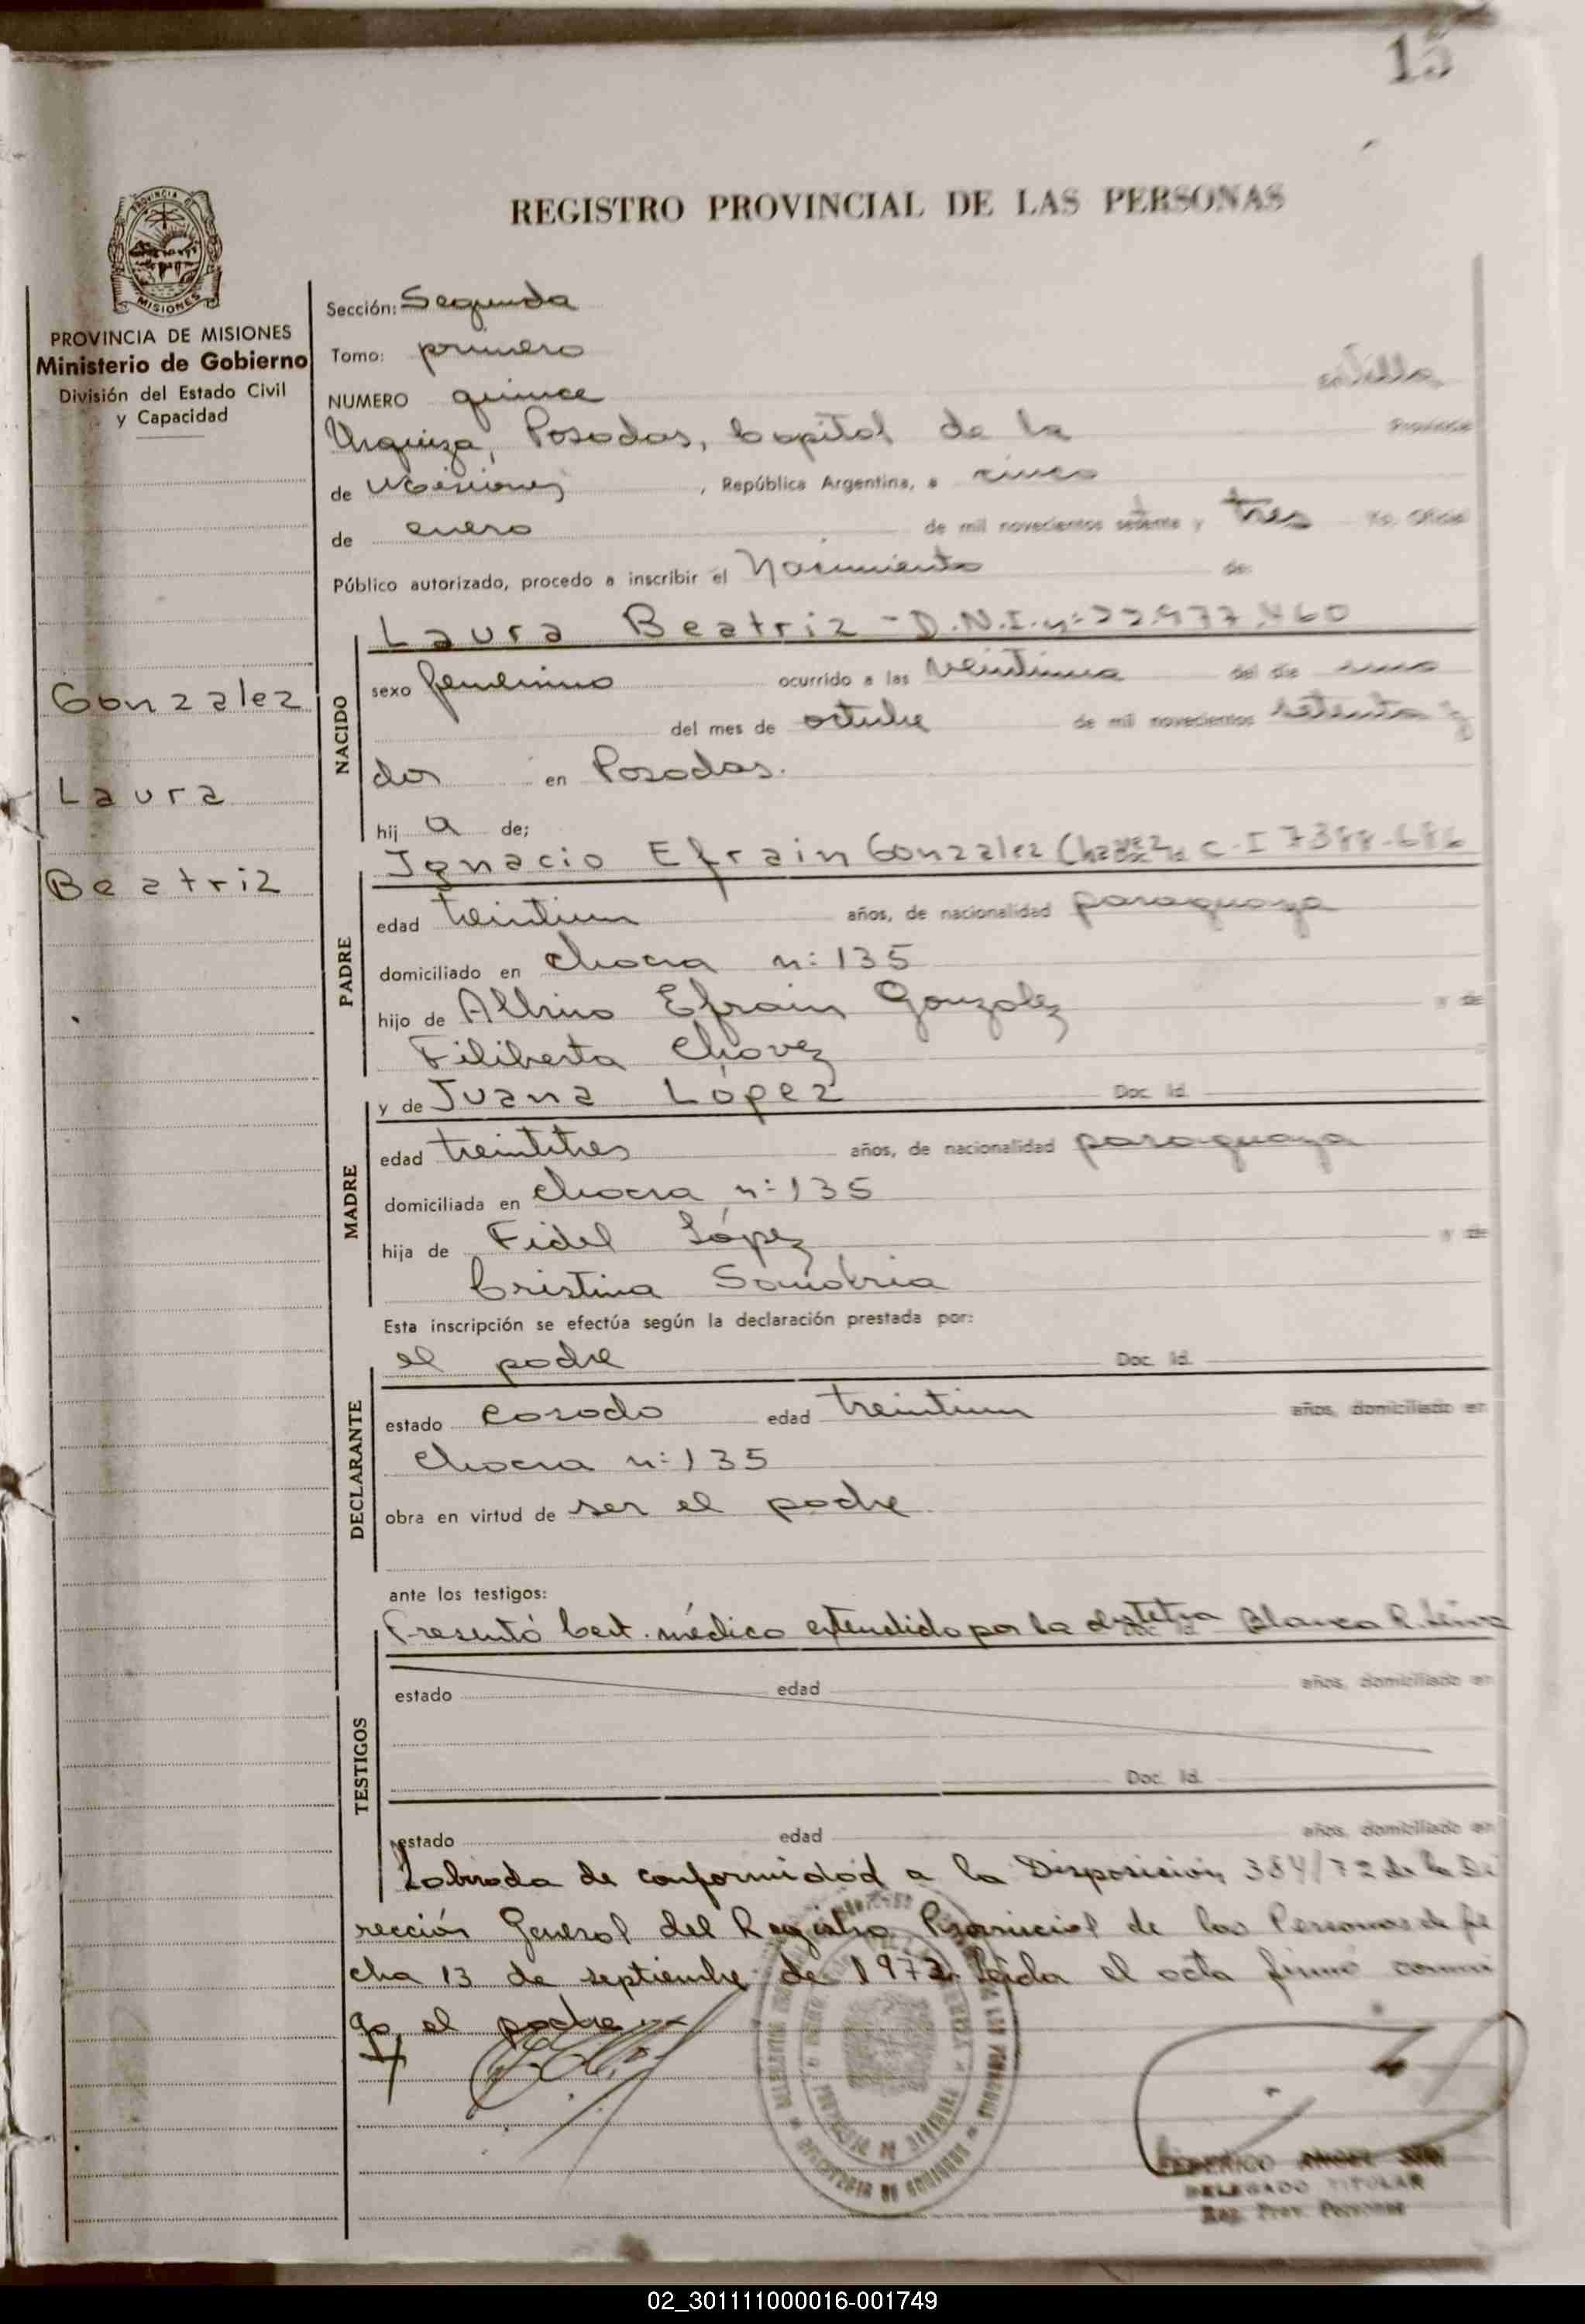 15
REGISTRO PROVINCIAL DE LAS PERSONAS
PROVINCIA DE MISIONES
Ministerio de Gobierno
División del Estado Civil
y Capacidad
Gonzalez
Laura
Beatriz
Sección: Segunda
Tomo: primero
NUMERO quince en Villa
Urquiza, Posadas, Capital de la Provincia
de Misiones, República Argentina, a cinco
de enero de mil novecientos setenta y tres Yo, Oficial
Público autorizado, procedo a inscribir el Nacimiento de:
NACIDO
Laura Beatriz - D.N.I. nº 22.977.460
sexo femenino ocurrido a las veintiuna del día uno
del mes de octubre de mil novecientos setenta y
dos en Posadas.
hij a de;
PADRE
Ignacio Efrain Gonzalez Chavez Doc. Id. C.I 7388.686
edad treintiun años, de nacionalidad paraguaya
domiciliado en chacra n: 135
hijo de Albino Efrain Gonzalez y de
Filiberta Chavez
MADRE
y de Juana López Doc. Id.
edad treintitres años, de nacionalidad paraguaya
domiciliada en chacra n: 135
hija de Fidel López y de
Cristina
Esta inscripción se efectúa según la declaración prestada por:
DECLARANTE
el padre Doc. Id.
estado casado edad treintiun años, domiciliado en
chacra n: 135
obra en virtud de ser el padre
ante los testigos:
TESTIGOS
Presentó Cert. médico extendido por la obstetra Blanca R.
estado edad años, domiciliado en
Doc. Id.
estado edad años, domiciliado en
Labrada de conformidad a la Disposición 384/72 de la Di
rección General del Registro Provincial de las Personas de fe
cha 13 de septiembre de 1972. Leída el acta firmó conmi
go, el padre
FEDERICO ANGEL
DELEGADO TITULAR
Reg. Prov. Personas
02_301111000016-001749